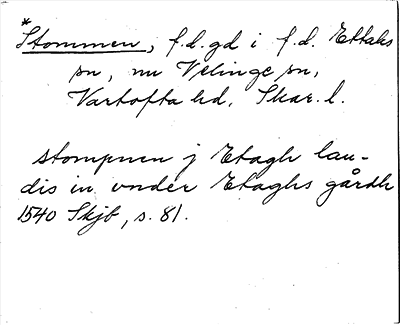 *Stommen, f.d. gd i f.d. Ettaks
sn, nu Velinge sn,
Vartofta hd, Skar. l.
stompnen j Etagh lau-
dis in vnder Etaghs gårdh
1540 Skjb, s. 81.